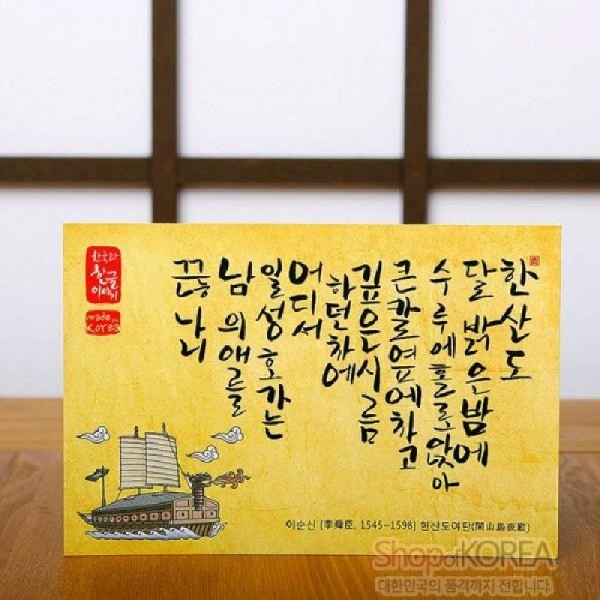 한산도
달 밝은 밤에
수루에 홀로 앉아
큰 칼 옆에 차고
깊은 시름
하던 차에
어디서
일성호가는
남의 애를
끊나니
한글
이야기
made in
Korea
이순신 (李舜臣, 1545~1598) 한산도야탄(閑山島夜歎)
Shop of KOREA
대한민국의 품격까지 전합니다.